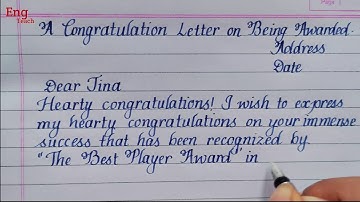 Eng
Teach
Page
A Congratulation Letter on Being Awarded.
Address
Date
Dear Tina
Hearty congratulations! I wish to express
my hearty congratulations on your immense
success that has been recognized by
"The Best Player Award" in